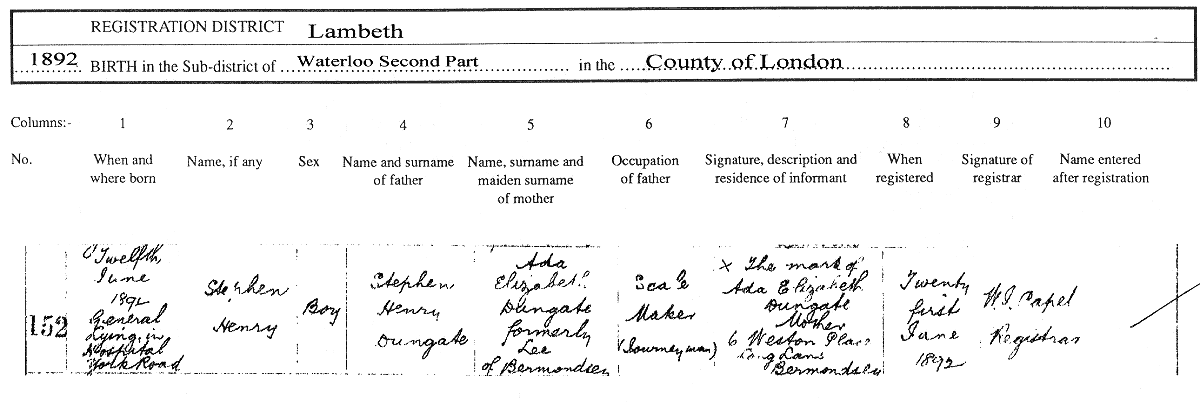 REGISTRATION DISTRICT Lambeth
1892 BIRTH in the Sub-district of Waterloo Second Part in the County of London
Columns:- 1 2 3 4 5 6 7 8 9 10
No.
When and
where born
Name, if any
Sex
Name and surname
of father
Name, surname and
maiden surname
of mother
Occupation
of father
Signature, description and
residence of informant
When
registered
Signature of
registrar
Name entered
after registration
152
Twelfth
June
1892
General
Lying in
Hospital
York Road
Stephen
Henry
Boy
Stephen
Henry
Dungate
Ada
Elizabeth
Dungate
formerly
Lee
of Bermondsey
Scale
Maker
(Journeyman)
X The mark of
Ada Elizabeth
Dungate
Mother
6 Weston Place
Long Lane
Bermondsey
Twenty
first
June
1892
Capel
Registrar